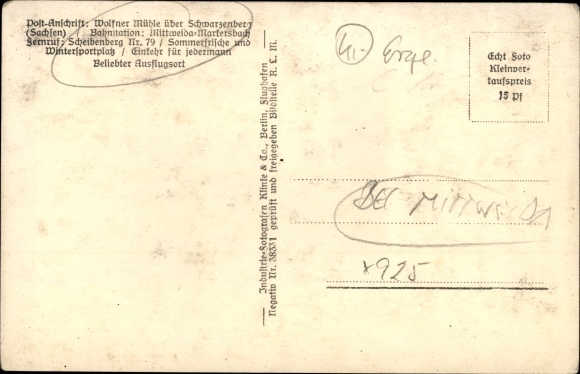 Post-Anschrift: Wolfner Mühle über Schwarzenberg
(Sachsen) Bahnstation: Mittweida-Markersbach
Fernruf: Scheibenberg Nr. 79 / Sommerfrische und
Wintersportplatz / Einkehr für jedermann
Beliebter Ausflugsort
Industrie-Fotografen Klinke & Co., Berlin, Flughafen
Negativ Nr. 38331 geprüft und freigegeben Bildstelle R. L. M.
Erzg.
Echt Foto
Kleinver-
kaufspreis
15 Pf
BEI MITTWEIDA
x925